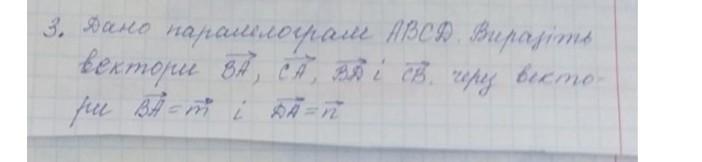 3. Дано паралелограм ABCD. Виразіть
вектори BA, CA, BD і CB. через векто-
ри BA = m і DA = n